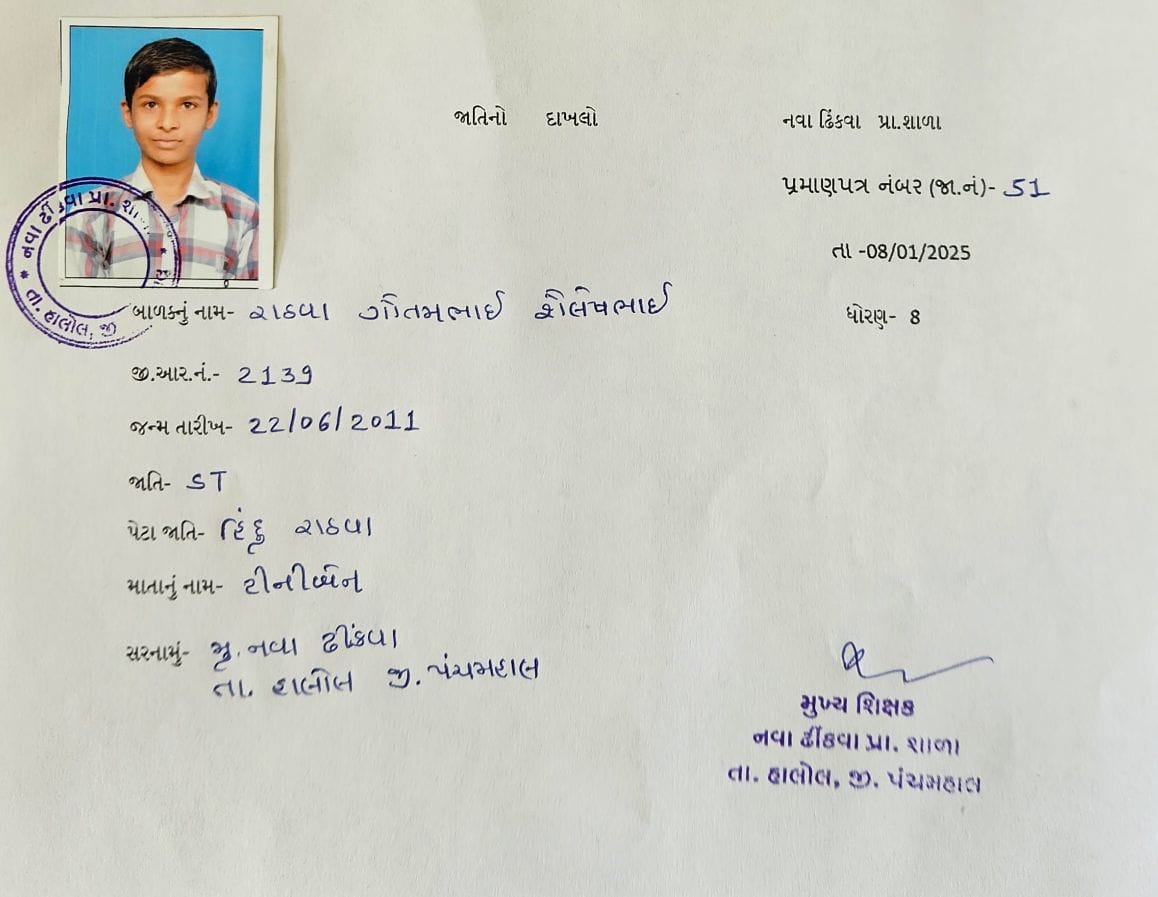 જાતિનો દાખલો
નવા ઢિંકવા પ્રા.શાળા
પ્રમાણપત્ર નંબર (જા.નં)- 51
તા -08/01/2025
નવા ઢીંકવા પ્રા. શા
તા. હાલોલ, જી
બાળકનું નામ- રાઠવા ગૌતમભાઈ શૈલેષભાઈ
ધોરણ- 8
જી.આર.નં.- 2139
જન્મ તારીખ- 22/06/2011
જાતિ- ST
પેટા જાતિ- હિંદૂ રાઠવા
માતાનું નામ- ટીનીબેન
સરનામું- મુ. નવા ઢીંકવા
તા. હાલોલ જી. પંચમહાલ
મુખ્ય શિક્ષક
નવા ઢીંકવા પ્રા. શાળા
તા. હાલોલ, જી. પંચમહાલ